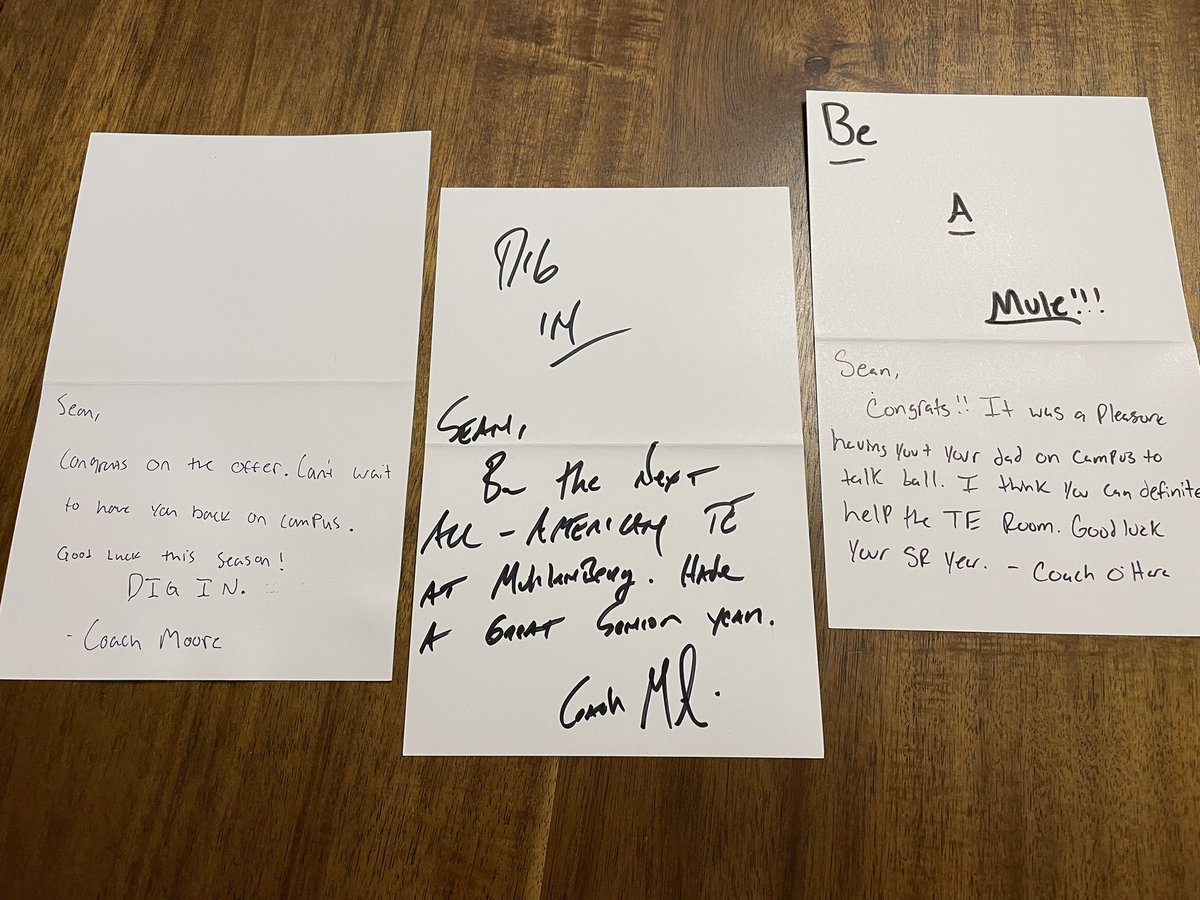 Sean,
Congrats on the offer. Can't wait
to have you back on campus.
Good luck this season!
DIG IN.
- Coach Moore
DIG
IN
SEAN,
Be the Next
ALL-AMERICAN TE
AT MuhlenBerg. Have
A Great Senior year.
Coach
Be
A
Mule!!!
Sean,
Congrats!! It was a Pleasure
having you + your dad on campus to
talk ball. I think you can definite
help the TE Room. Good luck
your SR year. - Coach O'Hara